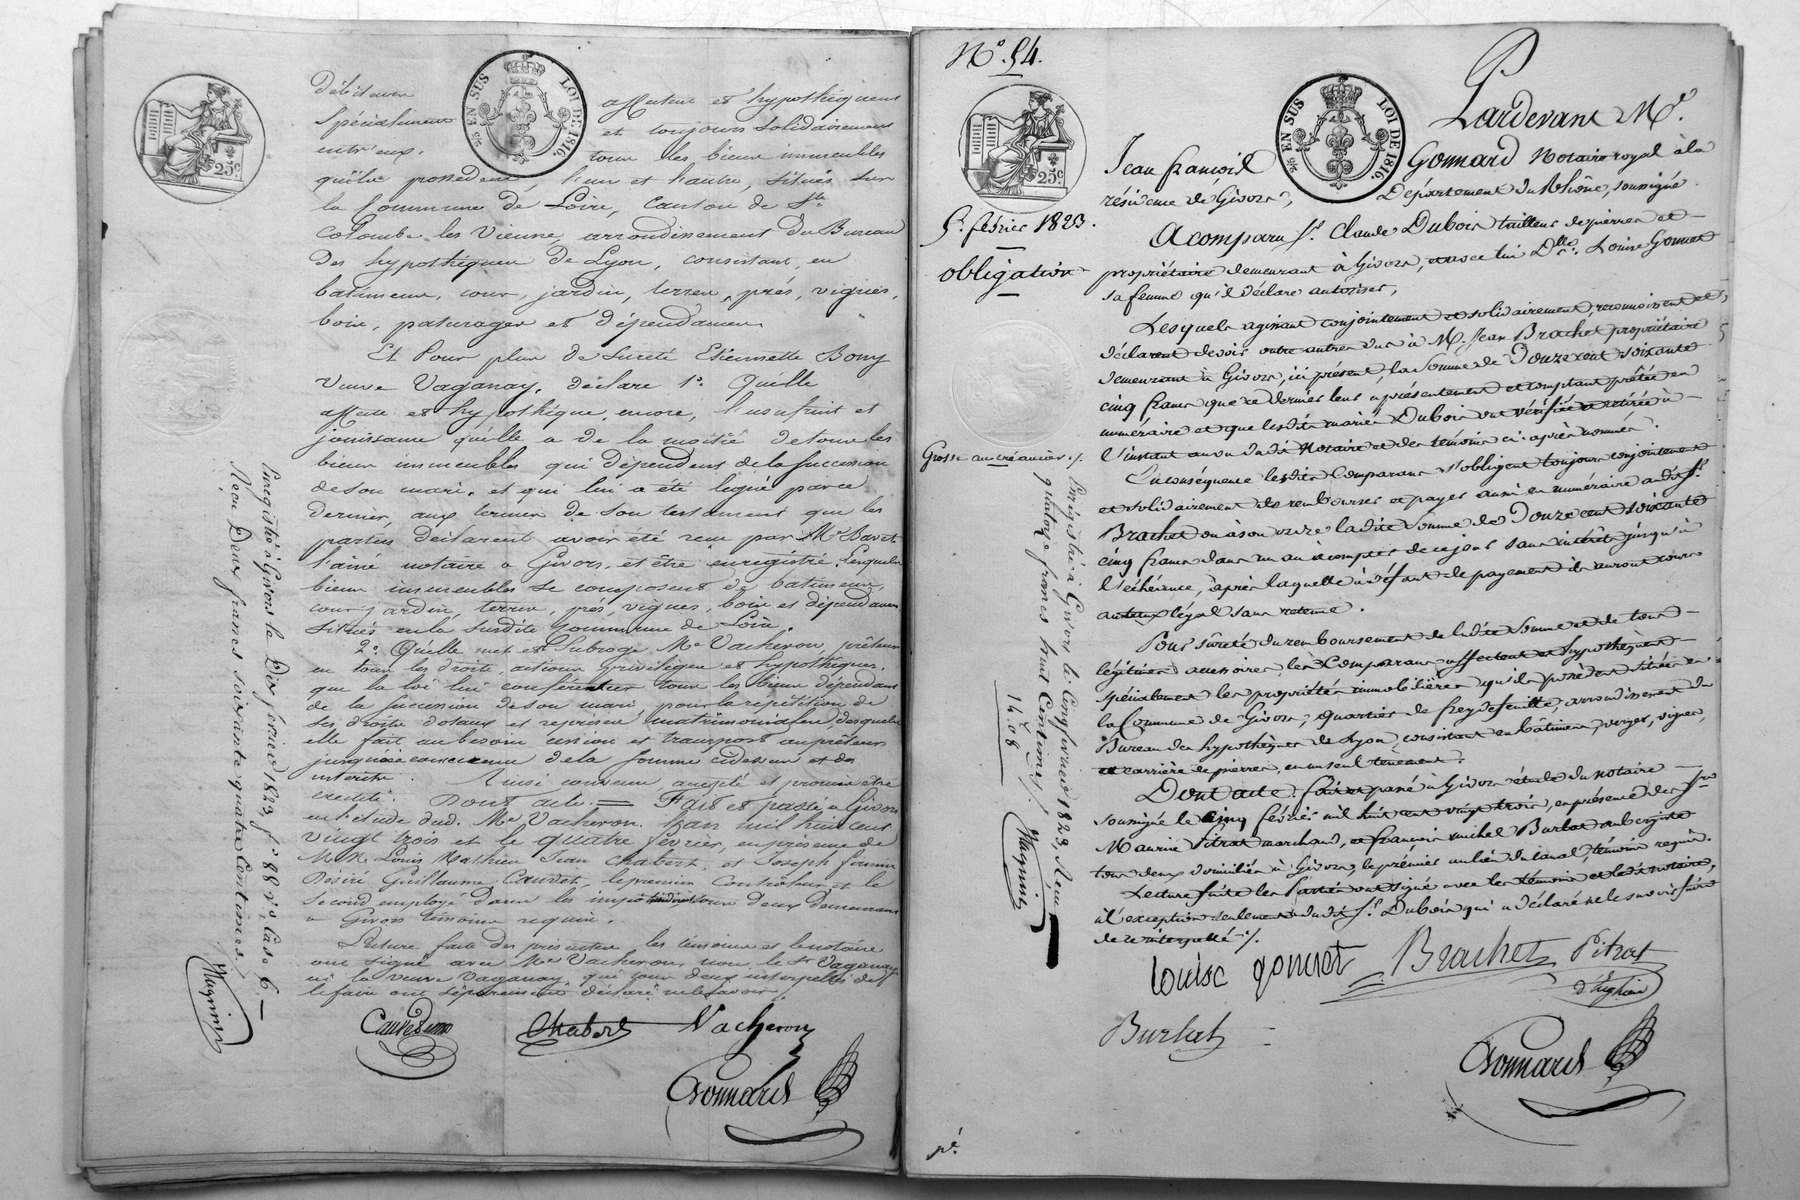 25c
2/5 EN SUS LOI DE 1816.
Débiteurs affectent et hypothèquent
Spécialement et toujours solidairement
entr'eux, tous les biens immeubles
qu'ils possèdent, l'un et l'autre, situés sur
la Commune de Loire, Canton de Ste
Colombe les Vienne, arrondissement du Bureau
des hypothèques de Lyon, consistant en
batimens, cour, jardin, terres, prés, vignes,
bois, paturages et dépendances.
Et Pour plus de Sureté Etiennette Bony
Veuve Vaganay, déclare 1o. Qu'elle
affecte et hypothèque encore, l'usufruit et
jouissance qu'elle a de la moitié de tous les
biens immeubles qui dépendent de la Succession
de son mari, et qui lui a été légué par ce
dernier, aux termes de son testament que les
parties déclarent avoir été reçu par Me
l'ainé notaire a Givors, et être enregistré. Lesquels
biens immeubles se composent de batimens,
cour, jardin, terres, prés, vignes, bois et dépendances
Situés en la Susdite Commune de Loire.
2o. Qu'elle met et Subroge Me Vacheron, prêteur
en tous les droits, actions Privilèges et hypothèques,
que la loi lui confère sur tous les biens dépendans
de la Succession de son mari, pour la répétition de
Ses droits dotaux et reprises matrimoniales desquels
elle fait au besoin cession et transport au prêteur
jusques a concurrence de la Somme cidessus et des
intérêts. Ainsi convenu accepté et promis être
exécuté. Dont acte = Fait et passé a Givors
en l'étude dud. Me Vacheron. L'an mil huit cent
vingt trois et le quatre février, en présence de
M.M. Louis Mathieu Jean Chabert, et Joseph
Désiré Guillaume Cauvet, le premier Contrôleur et le
Second employé dans les impôts tous deux demeurans
a Givors témoins requis.
Lecture faite des présentes les témoins et le notaire
ont signé avec Me Vacheron, non le Sr Vaganay
ni la veuve Vaganay, qui tous deux interpellés de
le faire ont séparément déclaré ne le savoir.
Chabert Vacheron
Gonnard
Enregistré à Givors le Dix février 1823, fo 88 Vo, Case 6
Reçu Deux francs soixante quatre Centimes.
Magnin
No. 54.
25c
2/5 EN SUS LOI DE 1816.
5. février 1823.
obligation
Grosse au créancier ./.
Enrégistré à Givors le Cinq fevrier 1823, Reçu
quatorze francs huit Centimes
14.08
Magnin
Pardevant Me.
Jean françois Gonnard Notaire royal à la
résidence de Givors, Département du Rhône, soussigné
A comparu Sr. Claude Dubois tailleur de pierres et
propriétaire demeurant à Givors, et avec lui Dlle. Louise Gonnet
sa femme qu'il déclare autoriser,
Lesquels agissant conjointement et solidairement, reconnoissent et
déclarent devoir outre autres dus à M. Jean Brachet propriétaire
demeurant à Givors, ici présent, la Somme de Douze cent soixante
cinq francs que ce dernier leur a présentement et comptant prêtée en
numéraire et que lesdits mariés Dubois ont vérifiée et retirée à
l'instant au vu dudit Notaire et des témoins ci-après nommés.
En conséquence lesdits Comparans s'obligent toujours conjointement
et solidairement de rembourser et payer aussi en numéraire audit Sr.
Brachet ou à son ordre ladite Somme de Douze cent soixante
cinq francs dans un an à compter de ce jour sans intérêt jusqu'à
l'échéance, après laquelle à défaut de payement ils auront cours
au taux légal sans retenue.
Pour sûreté du remboursement de ladite Somme et de tous
légitimes accessoires, les Comparans affectent et hypothèquent
spécialement les propriétés immobilières qu'ils possèdent situées en
la Commune de Givors, quartier de freydefeuille, arrondissement du
Bureau des hypothèques de Lyon, consistant en bâtiment, verger, vignes,
et carrière de pierres, en un seul tènement.
Dont acte. fait et passé à Givors étude du notaire
soussigné le Cinq février mil huit cent vingt trois, en présence des Srs
Maurice Pitrat marchand, et françois michel Burlat aubergiste
tous deux domiciliés à Givors, le prémier au lieu du Canal, témoins requis.
Lecture faite les Parties ont signé avec les témoins et ledit notaire,
à l'exception seulement dudit Sr. Dubois qui a déclaré ne le savoir faire
de ce interpellé ./.
Louise gonnet Brachet Pitrat
d'Enghien
Burlat
Gonnard